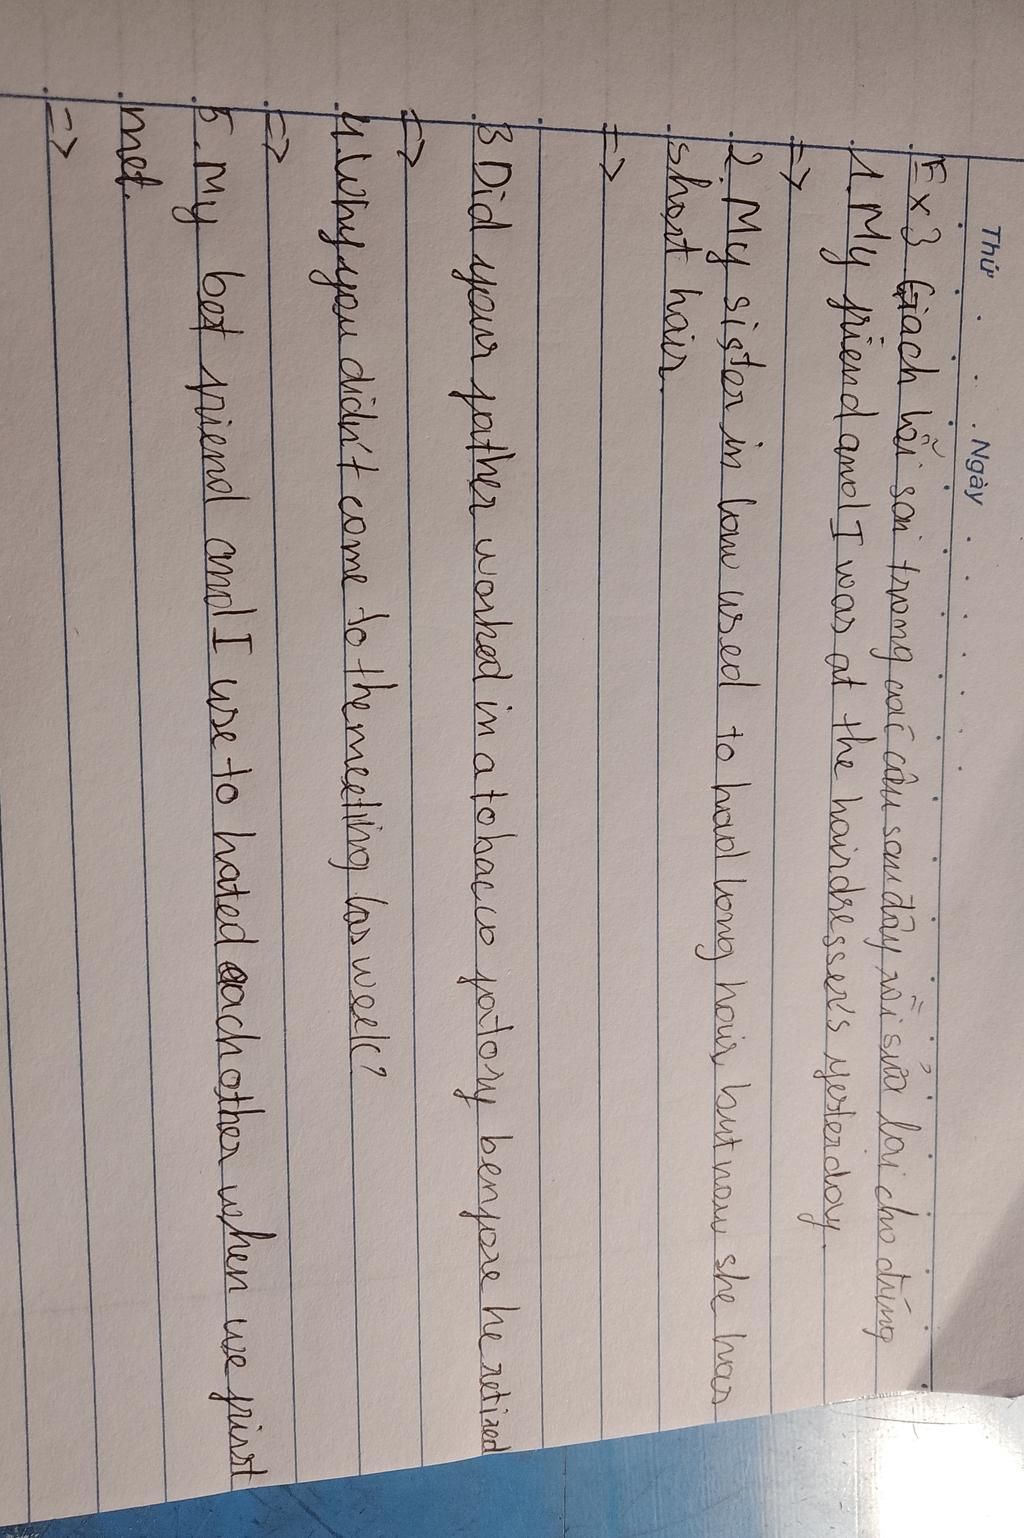 Thứ
Ngày
Ex3 Gạch lỗi sai trong các câu sau đây rồi sửa lại cho đúng
1. My friend and I was at the hairdresser's yesterday.
=>
2. My sister in law used to had long hair, but now she has
short hair.
=>
3 Did your father worked in a tobacco fatory benfore he retired
=>
4. Why you didn't come to the meeting las week?
=>
5. My best friend and I use to hated each other when we first
met.
=>